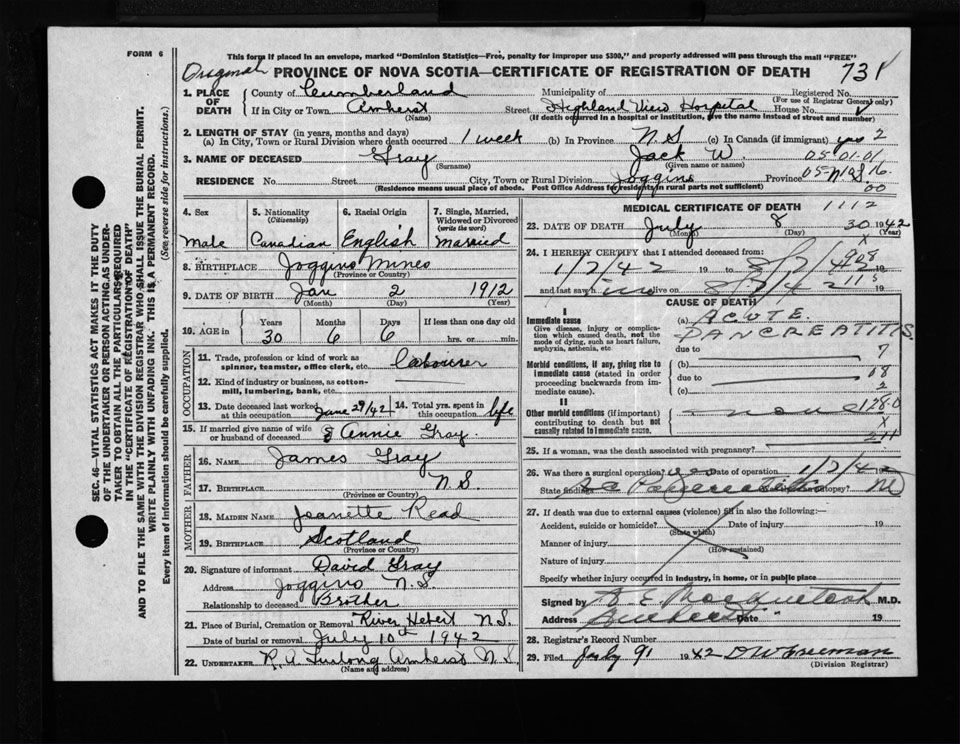 FORM 6
This form if placed in an envelope, marked "Dominion Statistics—Free, penalty for improper use $300," and properly addressed will pass through the mail "FREE"
Original PROVINCE OF NOVA SCOTIA—CERTIFICATE OF REGISTRATION OF DEATH 731
1. PLACE OF DEATH County of Cumberland Municipality of Registered No.
(For use of Registrar General only)
If in City or Town Amherst Street Highland View Hospital House No.
(Name) (If death occurred in a hospital or institution, give the name instead of street and number)
2. LENGTH OF STAY (in years, months and days)
(a) In City, Town or Rural Division where death occurred 1 week (b) In Province N S (c) In Canada (if immigrant) yes 2
3. NAME OF DECEASED Gray Jack W. 05-01-01
(Surname) (Given name or names)
RESIDENCE No. Street City, Town or Rural Division Joggins Province N.S.
(Residence means usual place of abode. Post Office Address for residents in rural parts not sufficient) 00
SEC. 46—VITAL STATISTICS ACT MAKES IT THE DUTY
OF THE UNDERTAKER OR PERSON ACTING AS UNDER-
TAKER TO OBTAIN ALL THE PARTICULARS REQUIRED
IN THE "CERTIFICATE OF REGISTRATION OF DEATH"
AND TO FILE THE SAME WITH THE DIVISION REGISTRAR WHO SHALL ISSUE THE BURIAL PERMIT.
WRITE PLAINLY WITH UNFADING INK. THIS IS A PERMANENT RECORD.
Every item of information should be carefully supplied. (See reverse side for instructions.)
4. Sex 5. Nationality (Citizenship) 6. Racial Origin 7. Single, Married, Widowed or Divorced (write the word)
Male Canadian English Married
8. BIRTHPLACE Joggins Mines
(Province or Country)
9. DATE OF BIRTH Jan 2 1912
(Month) (Day) (Year)
10. AGE in Years Months Days If less than one day old
30 6 6 hrs. or min.
OCCUPATION
11. Trade, profession or kind of work as spinner, teamster, office clerk, etc. labourer
12. Kind of industry or business, as cotton-mill, lumbering, bank, etc.
13. Date deceased last worked at this occupation June 29/42 14. Total yrs. spent in this occupation life
15. If married give name of wife or husband of deceased Annie Gray
FATHER
16. NAME James Gray
17. BIRTHPLACE N.S.
(Province or Country)
MOTHER
18. MAIDEN NAME Jeanette Read
19. BIRTHPLACE Scotland
(Province or Country)
20. Signature of informant David Gray
Address Joggins N.S.
Relationship to deceased Brother
21. Place of Burial, Cremation or Removal River Hebert N.S.
Date of burial or removal July 10th 1942
22. UNDERTAKER R. A. Furlong Amherst N.S.
(Name and address)
MEDICAL CERTIFICATE OF DEATH 1112
23. DATE OF DEATH July 8 30 1942
(Month) (Day) (Year)
24. I HEREBY CERTIFY that I attended deceased from:
1/7/42 19 to 8/7/42 19
and last saw h im alive on 8/7/42 19
CAUSE OF DEATH
I
Immediate cause
Give disease, injury or complication which caused death, not the mode of dying, such as heart failure, asphyxia, asthenia, etc.
(a) ACUTE PANCREATITIS.
due to 7
Morbid conditions, if any, giving rise to immediate cause (stated in order proceeding backwards from immediate cause).
(b)
due to 08
(c) 2
II
Other morbid conditions (if important) contributing to death but not causally related to immediate cause.
none 1280
X
211
25. If a woman, was the death associated with pregnancy?
26. Was there a surgical operation? yes Date of operation 1/7/42
State findings autopsy?
27. If death was due to external causes (violence) fill in also the following:—
Accident, suicide or homicide? Date of injury 19
(State which)
Manner of injury
(How sustained)
Nature of injury
Specify whether injury occurred in industry, in home, or in public place
Signed by M.D.
Address Amherst Date 19
28. Registrar's Record Number
29. Filed July 9 1942 D W Freeman
(Division Registrar)